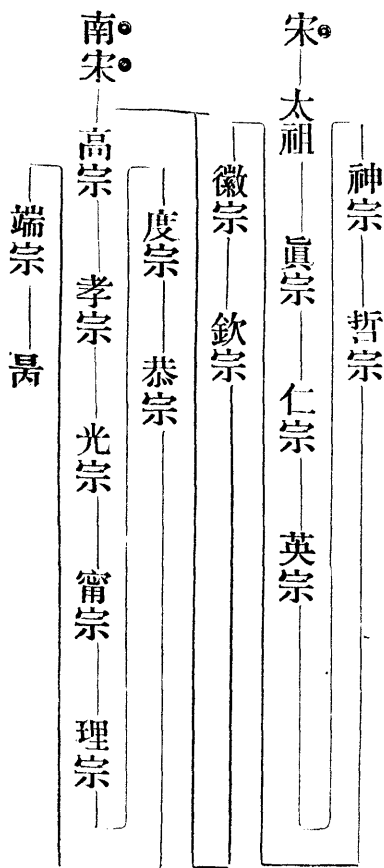 宋 太祖 眞宗 仁宗 英宗
神宗 哲宗
徽宗 欽宗
南宋 高宗 孝宗 光宗 甯宗 理宗
度宗 恭宗
端宗 昺